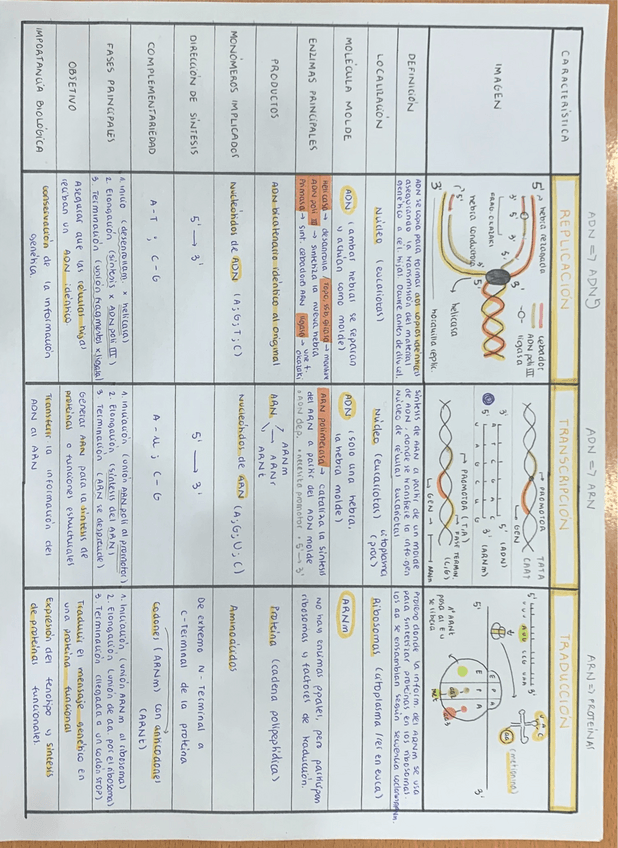 ADN => ADN
ADN => ARN
ARN => PROTEÍNAS
CARACTERÍSTICA
REPLICACIÓN
TRANSCRIPCIÓN
TRADUCCIÓN
IMAGEN
5'
hebra retrasada
cebador
ADN poli III
ligasa
3'
5'
hebra conductora
helicasa
horquilla replic.
3'
PROMOTOR
TATA
CAAT
GEN
3'
5' (ADN)
5'
3' (ARNm)
PROMOTOR (T.A)
GEN
ARNm
5'
3'
(metionina)
E P A
E P A
5'
3'
se libera
DEFINICIÓN
ADN se copia para formar dos copias idénticas
asegurando la transmisión del material
genético a cél. hijas. Ocurre antes de div. cel
Síntesis de ARN a partir de un molde
de ADN, donde se transfiere la info gen
Núcleo de células eucariotas
Proceso donde la inform. del ARNm se usa
para sintetizar proteínas en los ribosomas
LOCALIZACIÓN
Núcleo (eucariotas)
Núcleo (eucariotas) citoplasma
(proc)
Ribosomas (citoplasma / rel en euca)
MOLÉCULA MOLDE
ADN (ambas hebras se separan
y actúan como molde)
ADN (solo una hebra,
la hebra molde)
ARNm
ENZIMAS PRINCIPALES
Helicasa → desenrolla
ADN poli III → sintetiza la nueva hebra
ARN polimerasa: cataliza la síntesis
del ARN a partir del ADN molde
No hay enzimas ppales, pero participan
ribosomas y factores de traducción.
PRODUCTOS
ADN bicatenario idéntico al original
ARN
ARNm
ARNr
ARNt
Proteína (cadena polipeptídica)
MONÓMEROS IMPLICADOS
Nucleótidos de ADN (A; G; T; C)
Nucleótidos de ARN (A; G; U; C)
Aminoácidos
DIRECCIÓN DE SÍNTESIS
5' → 3'
5' → 3'
De extremo N-Terminal a
C-Terminal de la proteína
COMPLEMENTARIEDAD
A-T ; C-G
A-U ; C-G
Codones (ARNm) con anticodones
(ARNt)
FASES PRINCIPALES
1. Inicio (desenrollam. x helicasa)
2. Elongación (síntesis x ADN poli III)
3. Terminación (unión fragmentos x ligasa)
1. Iniciación (unión ARN poli al promotor)
2. Elongación (síntesis del ARN)
3. Terminación (ARN se desprende)
1. Iniciación (unión ARNm al ribosoma)
2. Elongación (unión de aa. por el ribosoma)
3. Terminación (llegada a un codón STOP)
OBJETIVO
Asegurar que las células hijas
reciban un ADN idéntico
Generar ARN para la síntesis de
proteínas o funciones estructurales
Traducir el mensaje genético en
una proteína funcional
IMPORTANCIA BIOLÓGICA
Conservación de la información
genética.
Transferir la información del
ADN al ARN
Expresión del fenotipo y síntesis
de proteínas funcionales